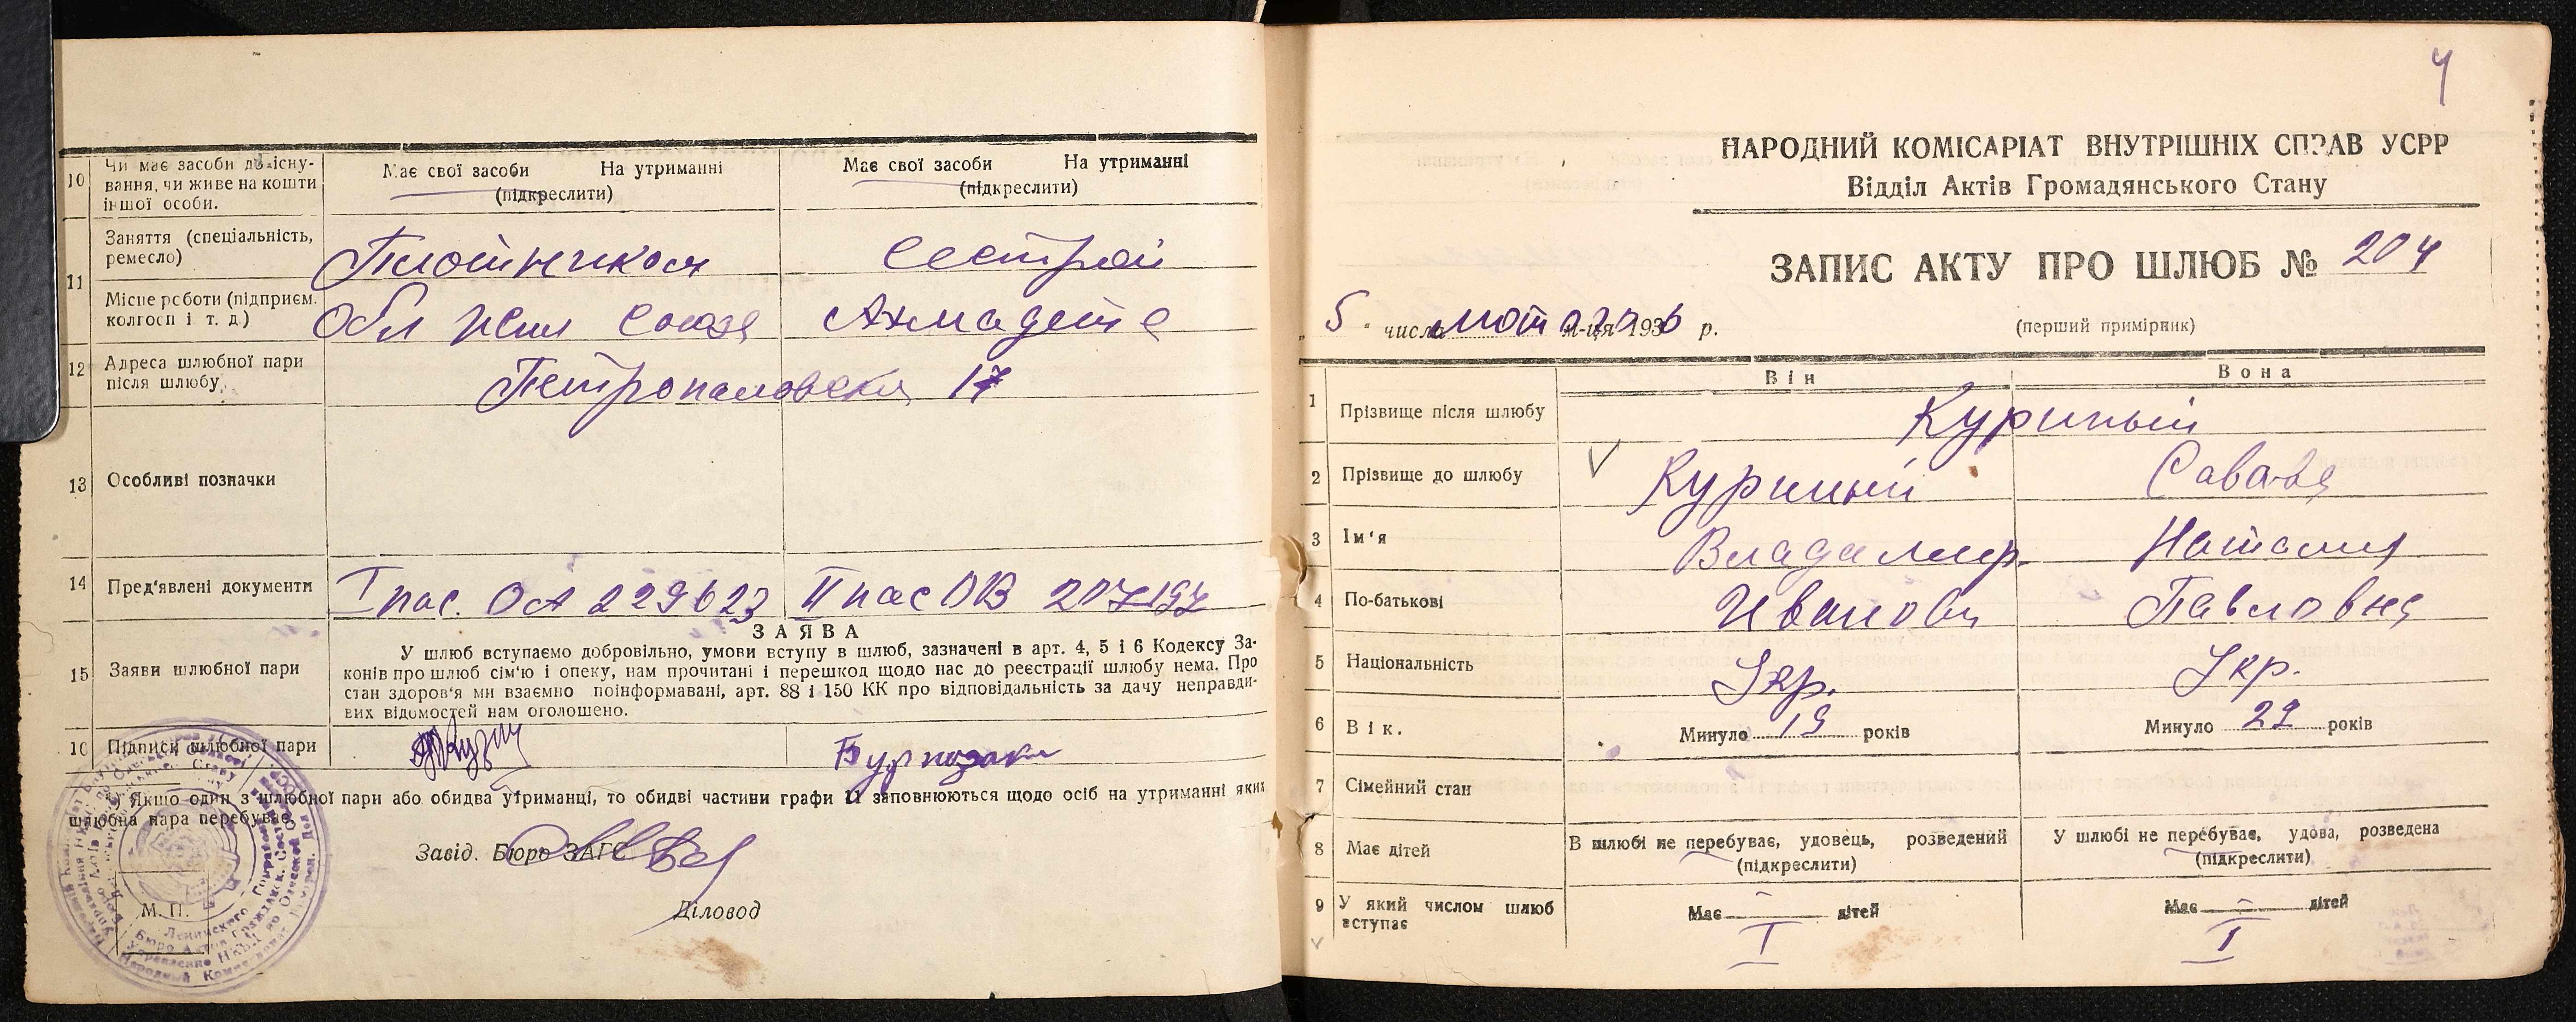 10 Чи має засоби до існу-
вання, чи живе на кошти
іншої особи.
Має свої засоби На утриманні
(підкреслити)
Має свої засоби На утриманні
(підкреслити)
11 Заняття (спеціальність,
ремесло)
Плотником
Сестрой
Місце роботи (підприєм.
колгосп і т. д.)
Обл
Союза
12 Адреса шлюбної пари
після шлюбу
17
13 Особливі позначки
14 Пред'явлені документи
I пас. ОА 229623
II пас ОВ 207197
15 Заяви шлюбної пари
ЗАЯВА
У шлюб вступаємо добровільно, умови вступу в шлюб, зазначені в арт. 4, 5 і 6 Кодексу За-
конів про шлюб сім'ю і опеку, нам прочитані і перешкод щодо нас до реєстрації шлюбу нема. Про
стан здоров'я ми взаємно поінформавані, арт. 88 і 150 КК про відповідальність за дачу неправди-
вих відомостей нам оголошено.
16 Підписи шлюбної пари
*) Якщо один з шлюбної пари або обидва утриманці, то обидві частини графи 11 заповнюються щодо осіб на утриманні яких
шлюбна пара перебуває.
Завід. Бюро ЗАГС
Діловод
М. П.
4
НАРОДНИЙ КОМІСАРІАТ ВНУТРІШНІХ СПРАВ УСРР
Відділ Актів Громадянського Стану
ЗАПИС АКТУ ПРО ШЛЮБ № 204
(перший примірник)
„ 5 " числа лютого м-ця 1936 р.
Він Вона
1 Прізвище після шлюбу
Куриный
2 Прізвище до шлюбу
Куриный
3 Ім'я
Владимир
Наталия
4 По-батькові
Иванович
Павловна
5 Національність
Укр.
Укр.
6 Вік.
Минуло 19 років
Минуло 22 років
7 Сімейний стан
8 Має дітей
В шлюбі не перебуває, удовець, розведений
(підкреслити)
У шлюбі не перебуває, удова, розведена
(підкреслити)
9 У який числом шлюб
вступає
Має - дітей
I
Має - дітей
I